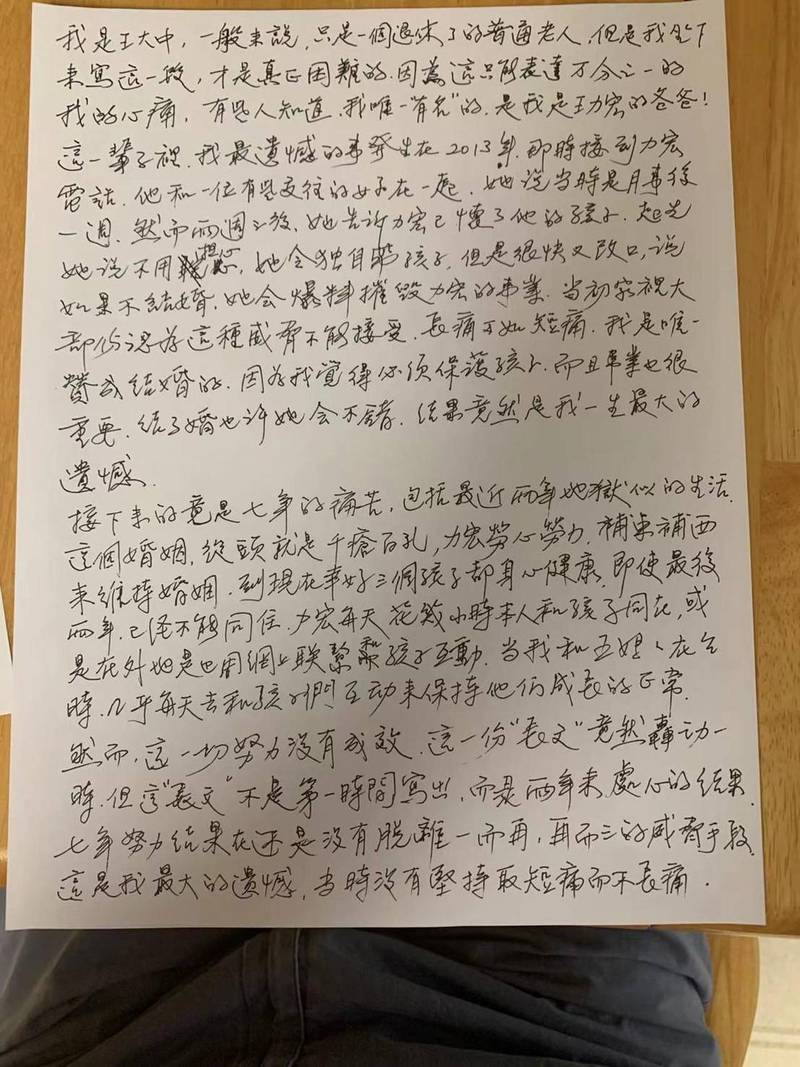 我是王大中，一般來説，只是一個退休了的普通老人，但是我坐下
來寫這一段，才是真正困難的。因為這只能表達万分之一的
我的心痛，有些人知道，我唯一“有名”的，是我是王力宏的爸爸！
這一輩子裡，我最遺憾的事發生在2013年，那時接到力宏
電話，他和一位有些交往的女子在一起，她説当時是月事後
一週，然而兩週之後，她告訴力宏已懷了他的孩子，起先
她说不用担心，她会独自帶孩子，但是很快又改口，说
如果不結婚，她会爆料摧毀力宏的事業，当初家裡大
部份認為這種威脅不能接受，長痛不如短痛，我是唯一
贊成結婚的，因為我覺得必須保護孩子，而且事業也很
重要，結了婚也许她会不錯，結果竟然是我一生最大的
遺憾．
接下来的竟是七年的痛苦，包括最近兩年地獄似的生活，
這個婚姻，從頭就是千瘡百孔，力宏勞心勞力，補東補西
来維持婚姻，到現在幸好三個孩子都身心健康，即使最後
兩年，已经不能同住，力宏每天花数小時本人和孩子同在，或
是在外地是也用網上聯繫和孩子互動，当我和王媽媽在台
時，几乎每天去和孩子們互动来保持他们成長的正常．
然而，這一切努力没有成效，這一份“長文”竟然轟动一
時，但這“長文”不是第一時間写出，而是兩年来處心的結果，
七年努力结果在还是没有脱離一而再，再而三的威脅手段，
這是我最大的遺憾，当時没有堅持取短痛而不長痛．